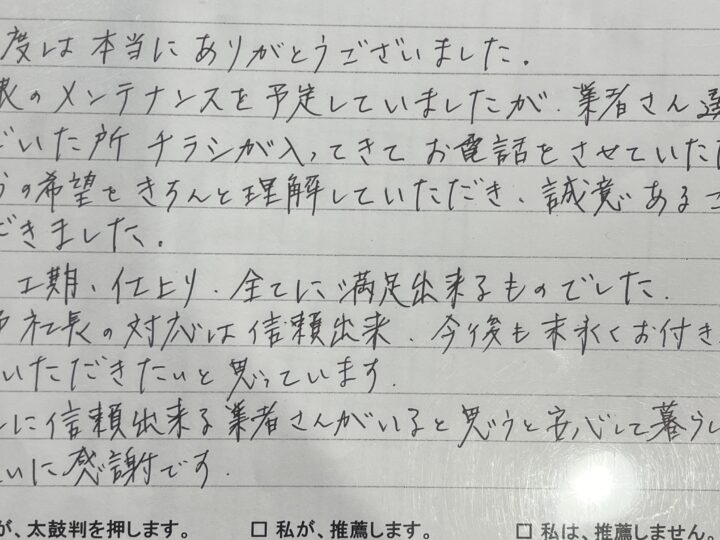 度は本当にありがとうございました。
根のメンテナンスを予定していましたが、業者さん選
でいた所 チラシが入ってきて お電話をさせていただ
らの希望をきちんと理解していただき、誠意ある
だきました。
工期、仕上り、全てに満足出来るものでした。
社長の対応は信頼出来、今後も末永くお付き
いただきたいと思っています。
に信頼出来る業者さんがいると思うと安心して暮らし
いに感謝です。
が、太鼓判を押します。 □ 私が、推薦します。 □ 私は、推薦しません。